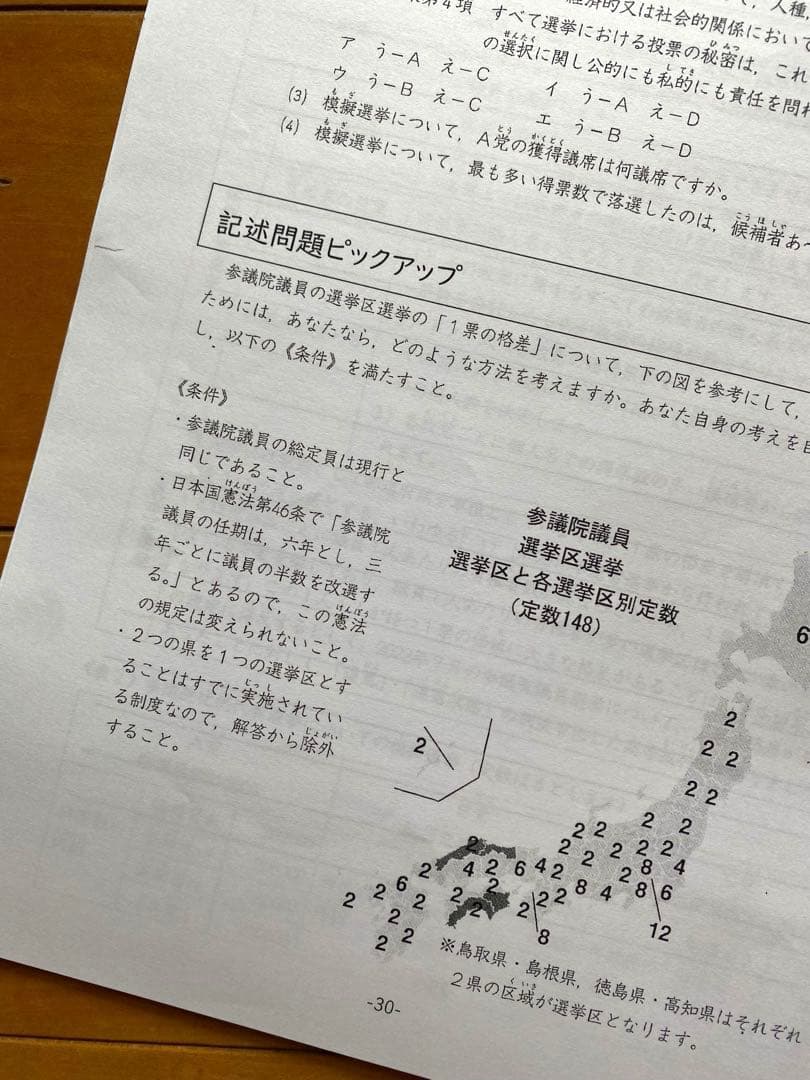 第4項 すべて選挙における投票の秘密は，これ
経済的又は社会的関係において
の選択に関し公的にも私的にも責任を問わ
ア う－A え－C
イ う－A え－D
ウ う－B え－C
エ う－B え－D
(3) 模擬選挙について，A党の獲得議席は何議席ですか。
(4) 模擬選挙について，最も多い得票数で落選したのは，候補者あ～
記述問題ピックアップ
参議院議員の選挙区選挙の「1票の格差」について，下の図を参考にして，
ためには，あなたなら，どのような方法を考えますか。あなた自身の考えを
し，以下の《条件》を満たすこと。
《条件》
・参議院議員の総定員は現行と
同じであること。
・日本国憲法第46条で「参議院
議員の任期は，六年とし，三
年ごとに議員の半数を改選す
る。」とあるので，この憲法
の規定は変えられないこと。
・2つの県を1つの選挙区とす
ることはすでに実施されてい
る制度なので，解答から除外
すること。
参議院議員
選挙区選挙
選挙区と各選挙区別定数
（定数148）
6
2
2 2
2 2
2 2
2 2 2 2 2
2 2 2 8 4
2 4 2 6 4 2 8 4 2 8 6
2 2 6 2 2 2 2 2 2 2
2 2 2
8
12
2
※鳥取県・島根県，徳島県・高知県はそれぞれ
2県の区域が選挙区となります。
-30-